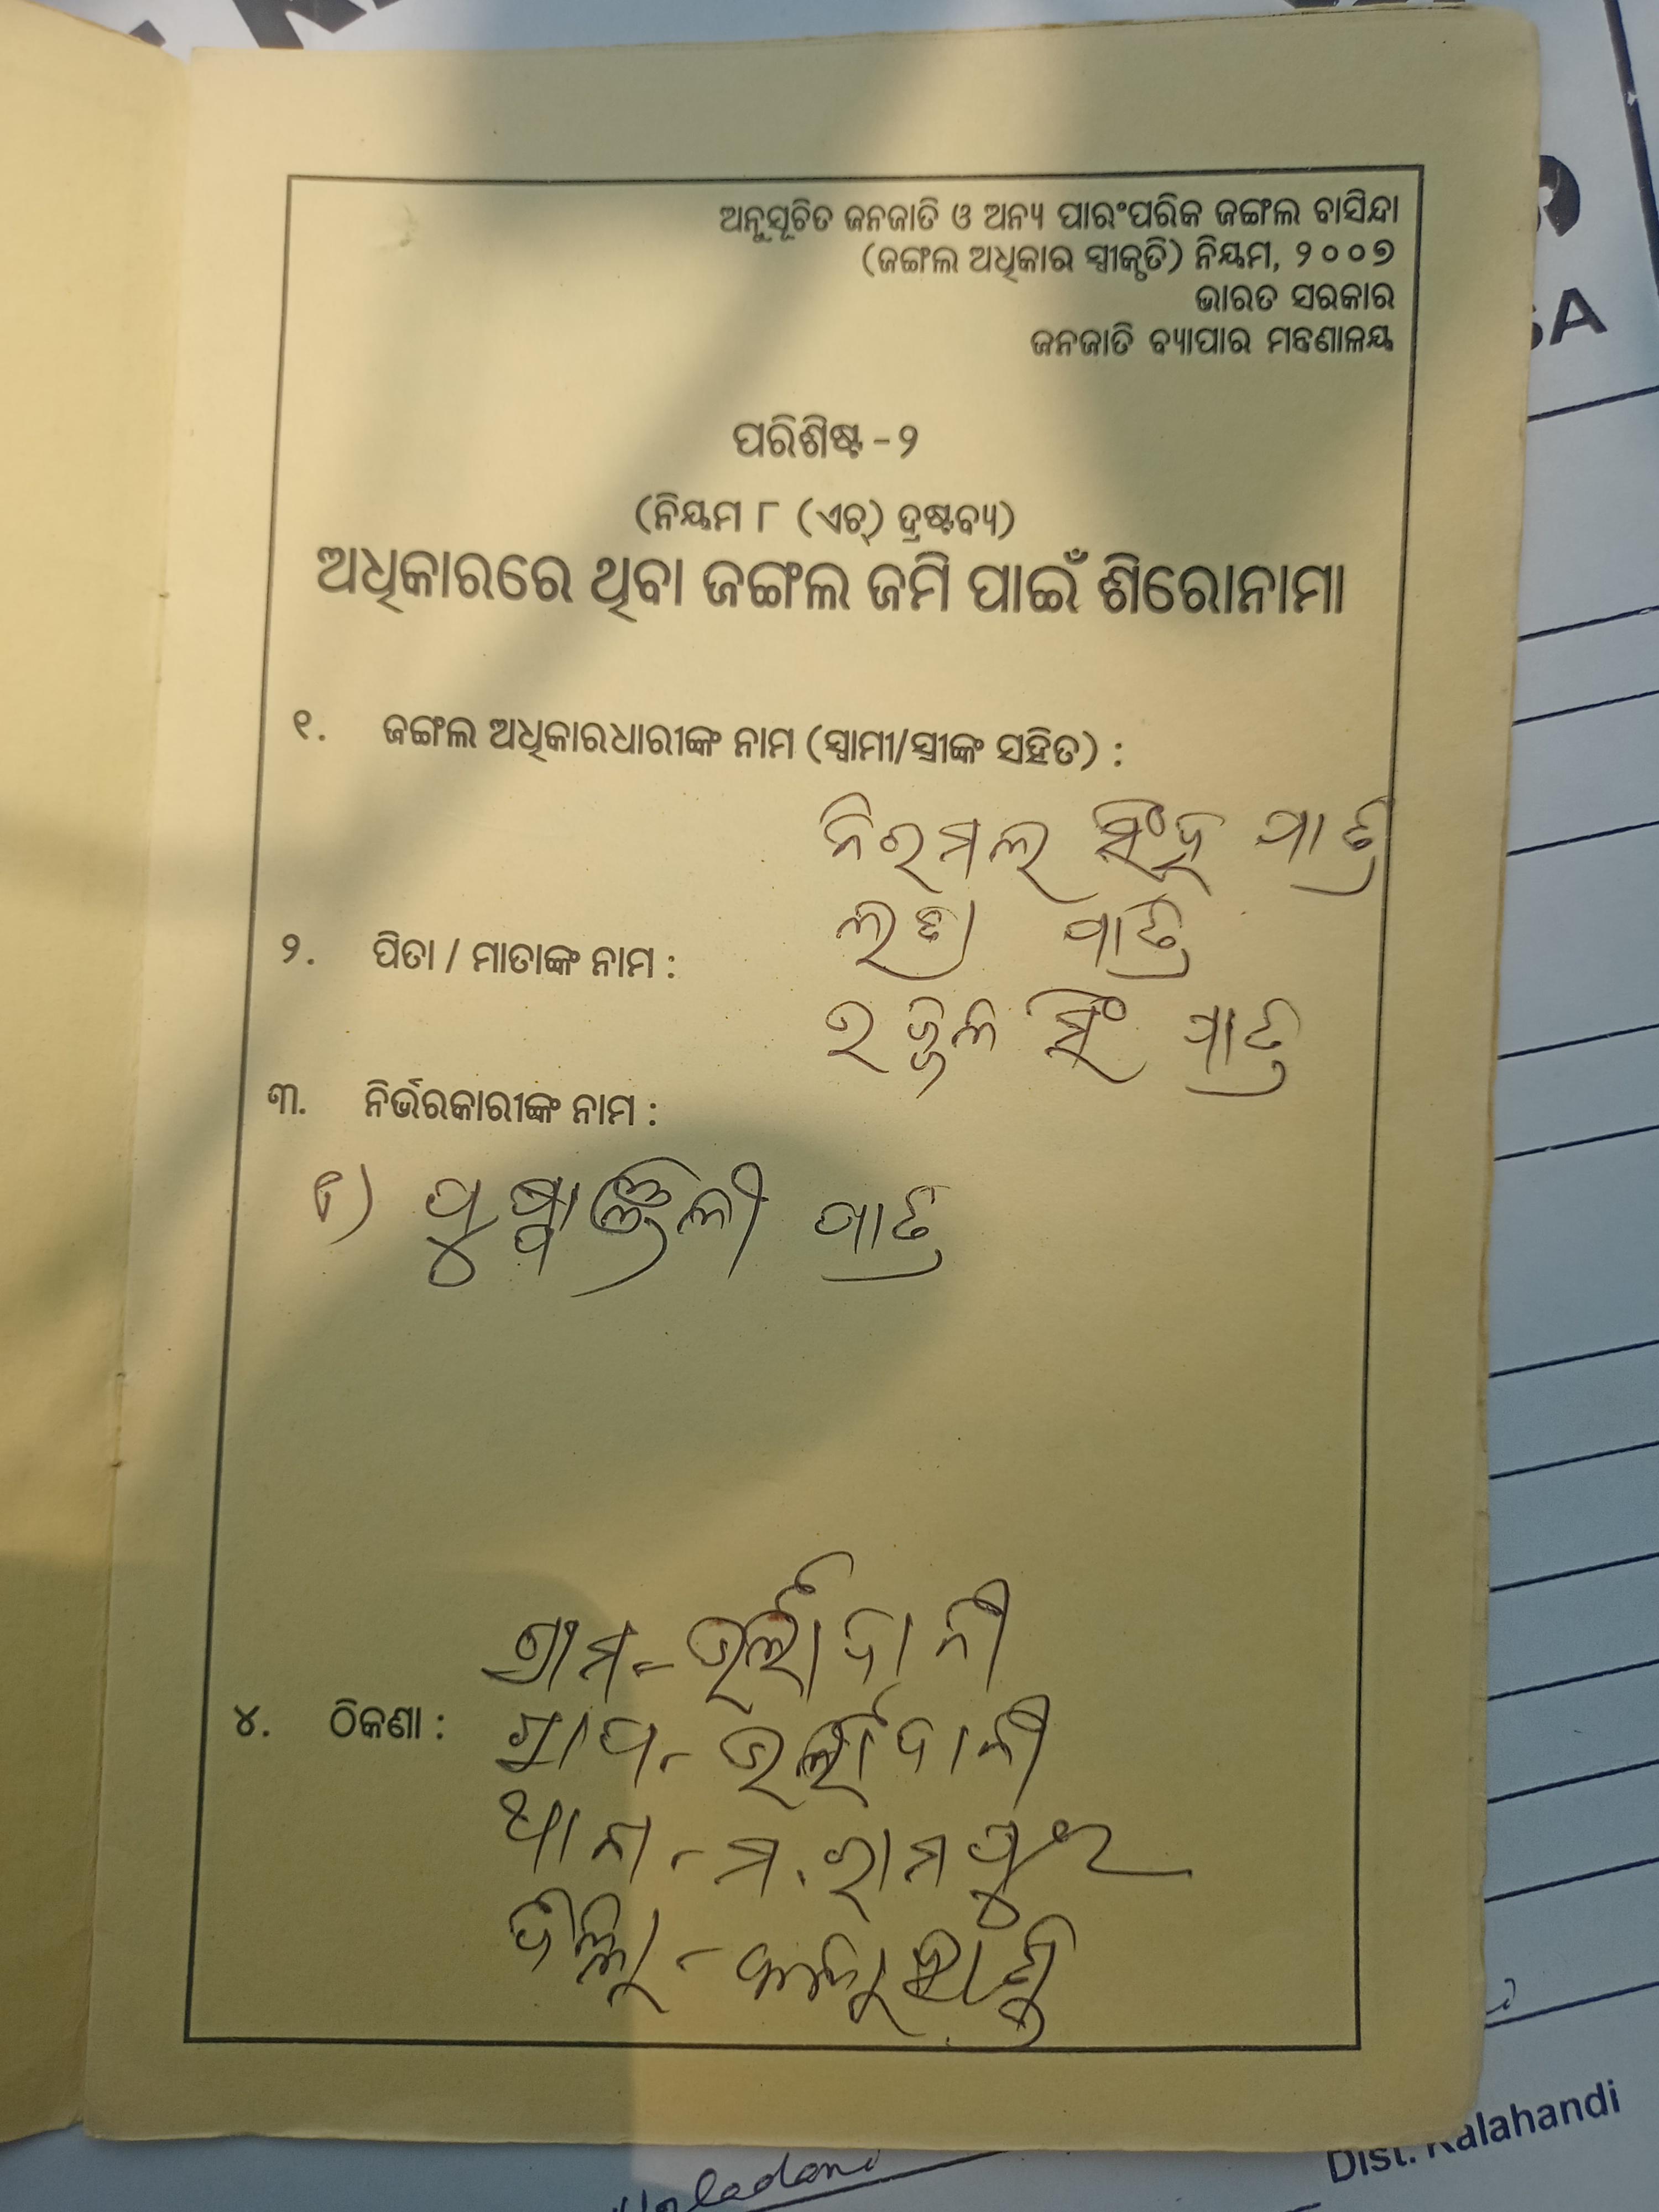 ଅନୁସୂଚିତ ଜନଜାତି ଓ ଅନ୍ୟ ପାରଂପରିକ ଜଙ୍ଗଲ ବାସିନ୍ଦା
(ଜଙ୍ଗଲ ଅଧିକାର ସ୍ୱୀକୃତି) ନିୟମ, ୨୦୦୭
ଭାରତ ସରକାର
ଜନଜାତି ବ୍ୟାପାର ମନ୍ତ୍ରଣାଳୟ
ପରିଶିଷ୍ଟ - ୨
(ନିୟମ ୮ (ଏଚ୍) ଦ୍ରଷ୍ଟବ୍ୟ)
ଅଧିକାରରେ ଥିବା ଜଙ୍ଗଲ ଜମି ପାଇଁ ଶିରୋନାମା
୧. ଜଙ୍ଗଲ ଅଧିକାରଧାରୀଙ୍କ ନାମ (ସ୍ୱାମୀ/ସ୍ତ୍ରୀଙ୍କ ସହିତ) :
ନିରମଲ ସିଂହ ପାତ୍ର
ପାତ୍ର
୨. ପିତା / ମାତାଙ୍କ ନାମ :
ସିଂ ପାତ୍ର
୩. ନିର୍ଭରକାରୀଙ୍କ ନାମ :
୧) ପୁଷ୍ପାଞ୍ଜଳୀ ପାତ୍ର
ଗ୍ରାମ - ଉର୍ଲାଦାନୀ
୪. ଠିକଣା : ଗ୍ରାପ - ଉର୍ଲାଦାନୀ
ଥାନା - ମ. ରାମପୁର
ଜିଲ୍ଲା - କଳାହାଣ୍ଡି
Dist. Kalahandi